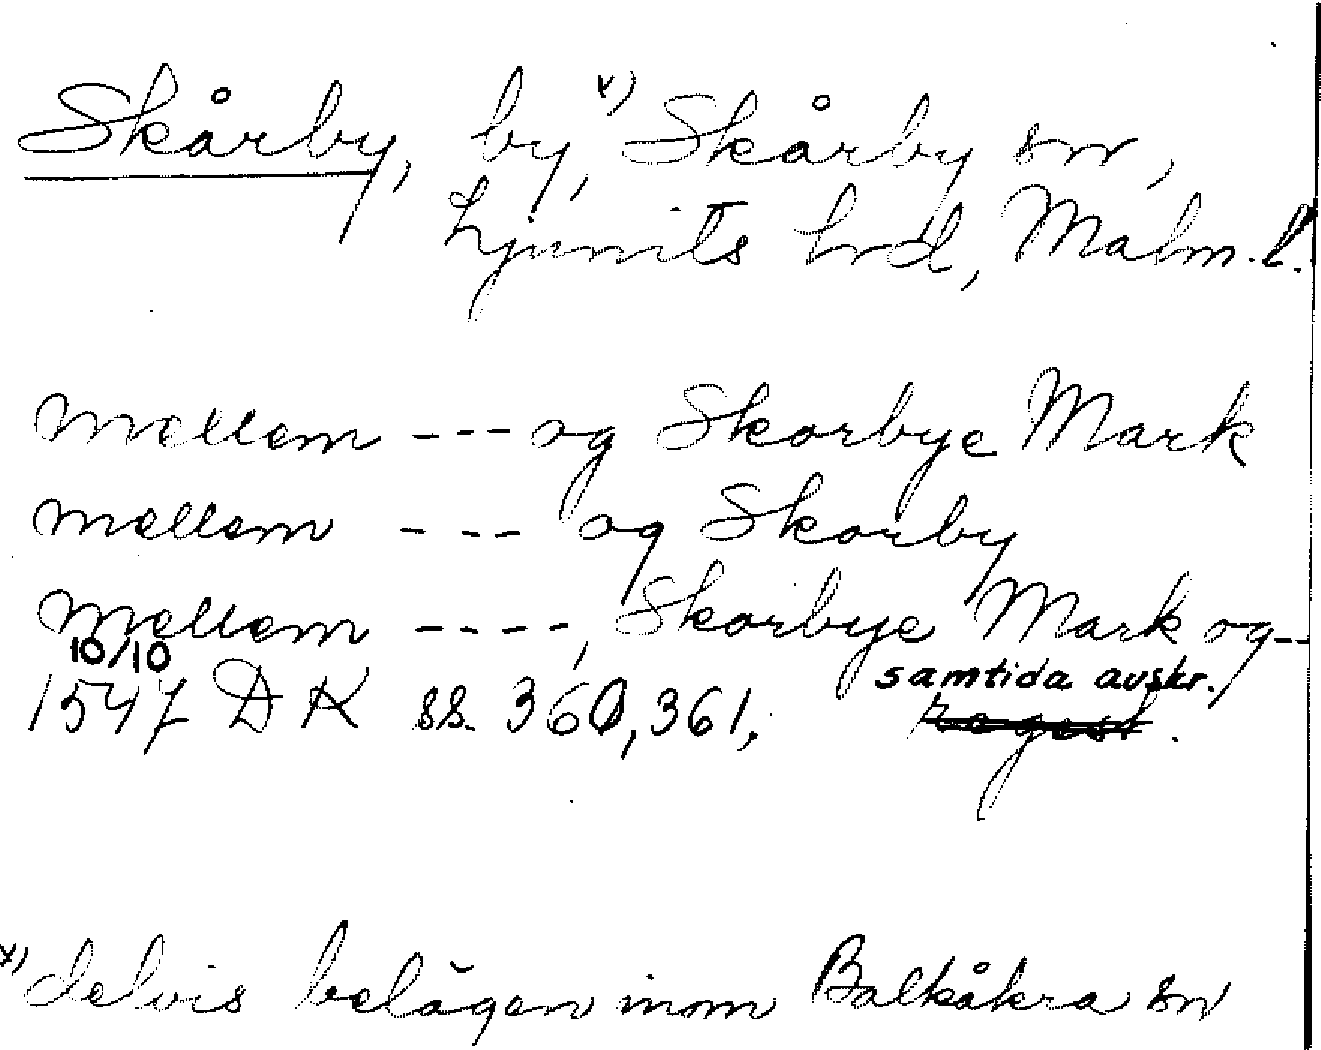 Skårby, by,x) Skårby sn,
Ljunits hrd, Malm. l.
mellem --- og Skorbye Mark
mellem --- og Skorby
mellem ----, Skorbye Mark og --
10/10 samtida avskr.
1547 DK ss. 360, 361, regest.
x) delvis belägen inom Balkåkra sn